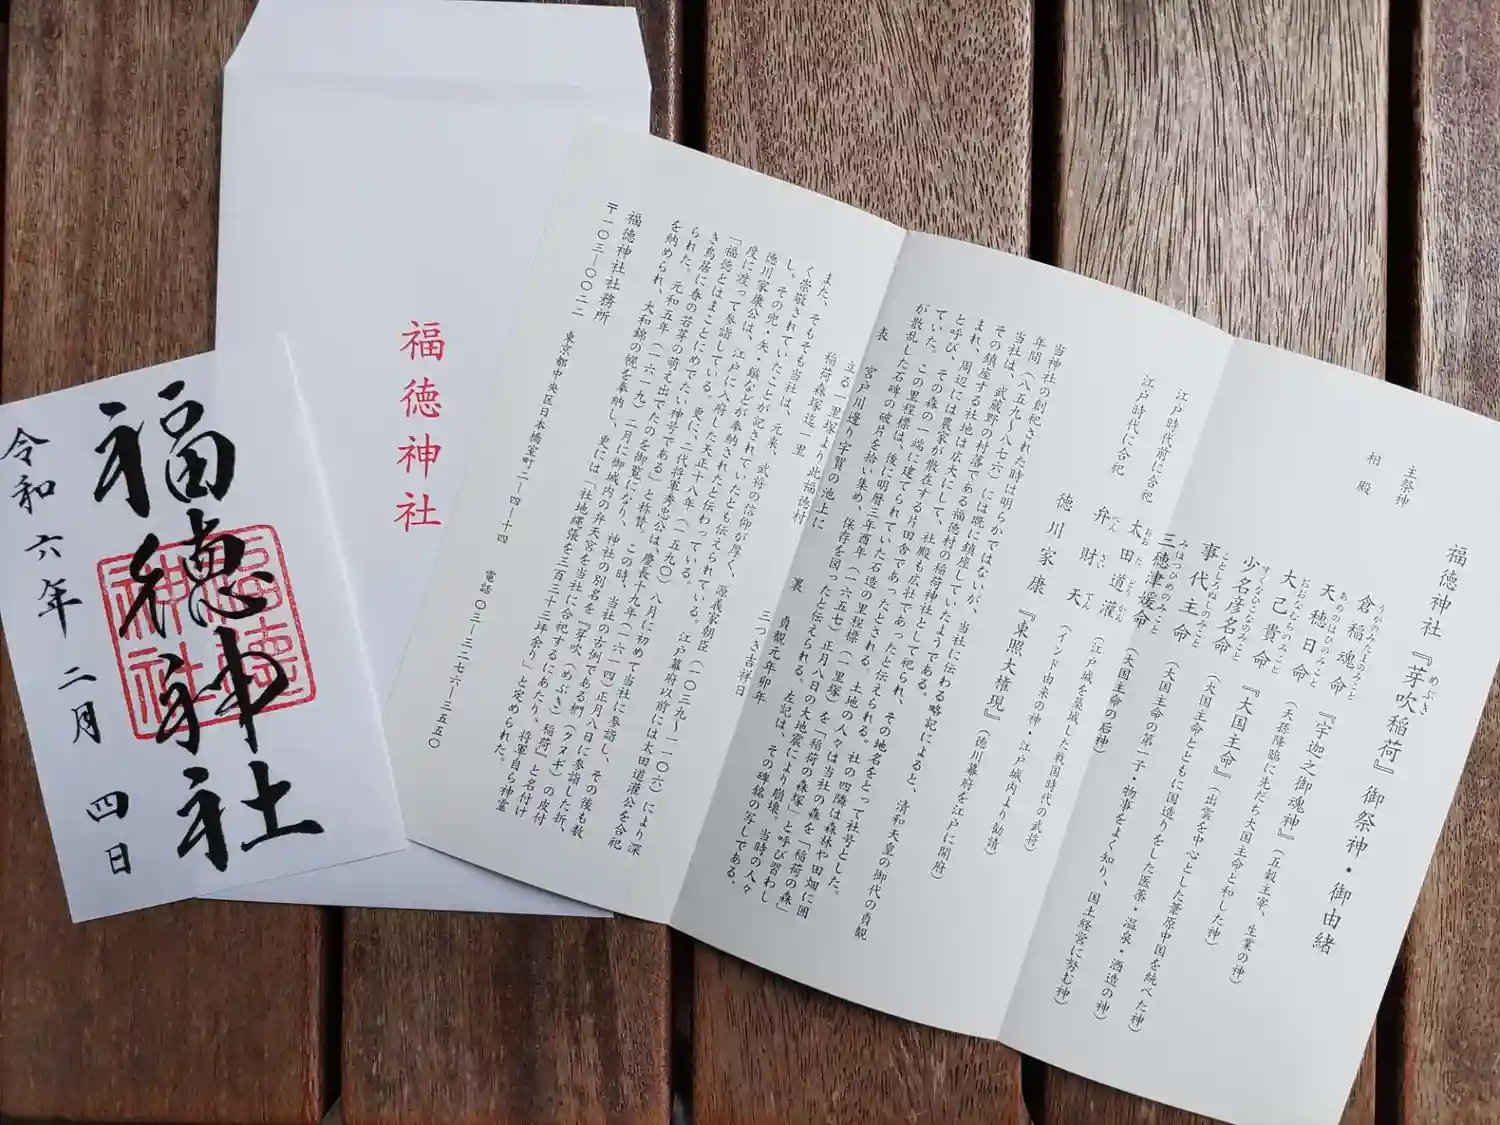 福徳神社『芽吹稲荷』御祭神・御由緒
めぶき
主祭神
倉稲魂命『宇迦之御魂神』(五穀主宰、生業の神)
うかのみたまのみこと
相殿
天穂日命(天孫降臨に先だち大国主命と和した神)
あめのほひのみこと
大己貴命『大国主命』(出雲を中心とした葦原中国を統べた神)
おおなむちのみこと
少名彦名命(大国主命とともに国造りをした医薬・温泉・酒造の神)
すくなひこなのみこと
事代主命(大国主命の第一子・物事をよく知り、国土経営に努む神)
ことしろぬしのみこと
三穂津媛命(大国主命の后神)
みほつひめのみこと
江戸時代前に合祀 太田道灌(江戸城を築城した戦国時代の武将)
おお た どう かん
江戸時代に合祀 弁財天(インド由来の神・江戸城内より勧請)
べん ざい てん
徳川家康『東照大権現』(徳川幕府を江戸に開府)
当神社の創祀された時は明らかではないが、当社に伝わる略記によると、清和天皇の御代の貞観
年間(八五九〜八七六)には既に鎮座していたようである。
当社は、武蔵野の村落である福徳村の稲荷神社として祀られ、その地名をとって社号とした。
その鎮座する社地は広大にして、社殿も広壮であったと伝えられる。社の四隣は森林や田畑に囲
まれ、周辺には農家が散在する片田舎であったとされる。土地の人々は当社の森を「稲荷の森」
と呼び、その森の一端に建てられていた石造の里程標(一里塚)を「稲荷の森塚」と呼び習わし
ていた。この里程標は、後に明暦三年酉年(一六五七)正月八日の大地震により崩壊。当時の人々
が散乱した石碑の破片を拾い集め、保存を図ったと伝えられる。左記は、その碑銘の写しである。
表 宮戸川邊り宇賀の池上に
立る一里塚より此福徳村
稲荷森塚迄一里
裏 貞観元年卯年
三つき吉祥日
また、そもそも当社は、元来、武将の信仰が厚く、源義家朝臣(一〇三九〜一一〇六)により深
く崇敬されていたことが記されていたとも伝えられている。江戸幕府以前には太田道灌公を合祀
し、その兜・矢・鏃などが奉納されたと伝わっている。
徳川家康公は、江戸に入府した天正十八年(一五九〇)八月に初めて当社に参詣し、その後も数
度に渡って参詣している。更に、二代将軍秀忠公は、慶長十九年(一六一四)正月八日に参詣した折、
「福徳とはまことにめでたい神号である」と称賛。この時、当社の古例である椚(クヌギ)の皮付
き鳥居に春の若芽の萌え出でたのを御覧になり、神社の別名を『芽吹(めぶき)稲荷』と名付け
られた。元和五年(一六一九)二月に御城内の弁天宮を当社に合祀するにあたり、将軍自ら神霊
を納められ、大和錦の幌を奉納し、更には「社地縄張を三百三十三坪余り」と定められた。
福徳神社社務所
〒一〇三-〇〇二二 東京都中央区日本橋室町二-四-十四 電話〇三-三二七六-三五五〇
福徳神社
福徳神社
福徳神社
令和六年二月四日